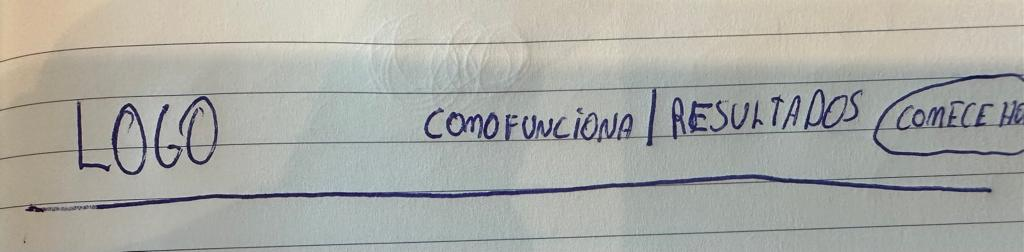 LOGO COMO FUNCIONA | RESULTADOS COMECE